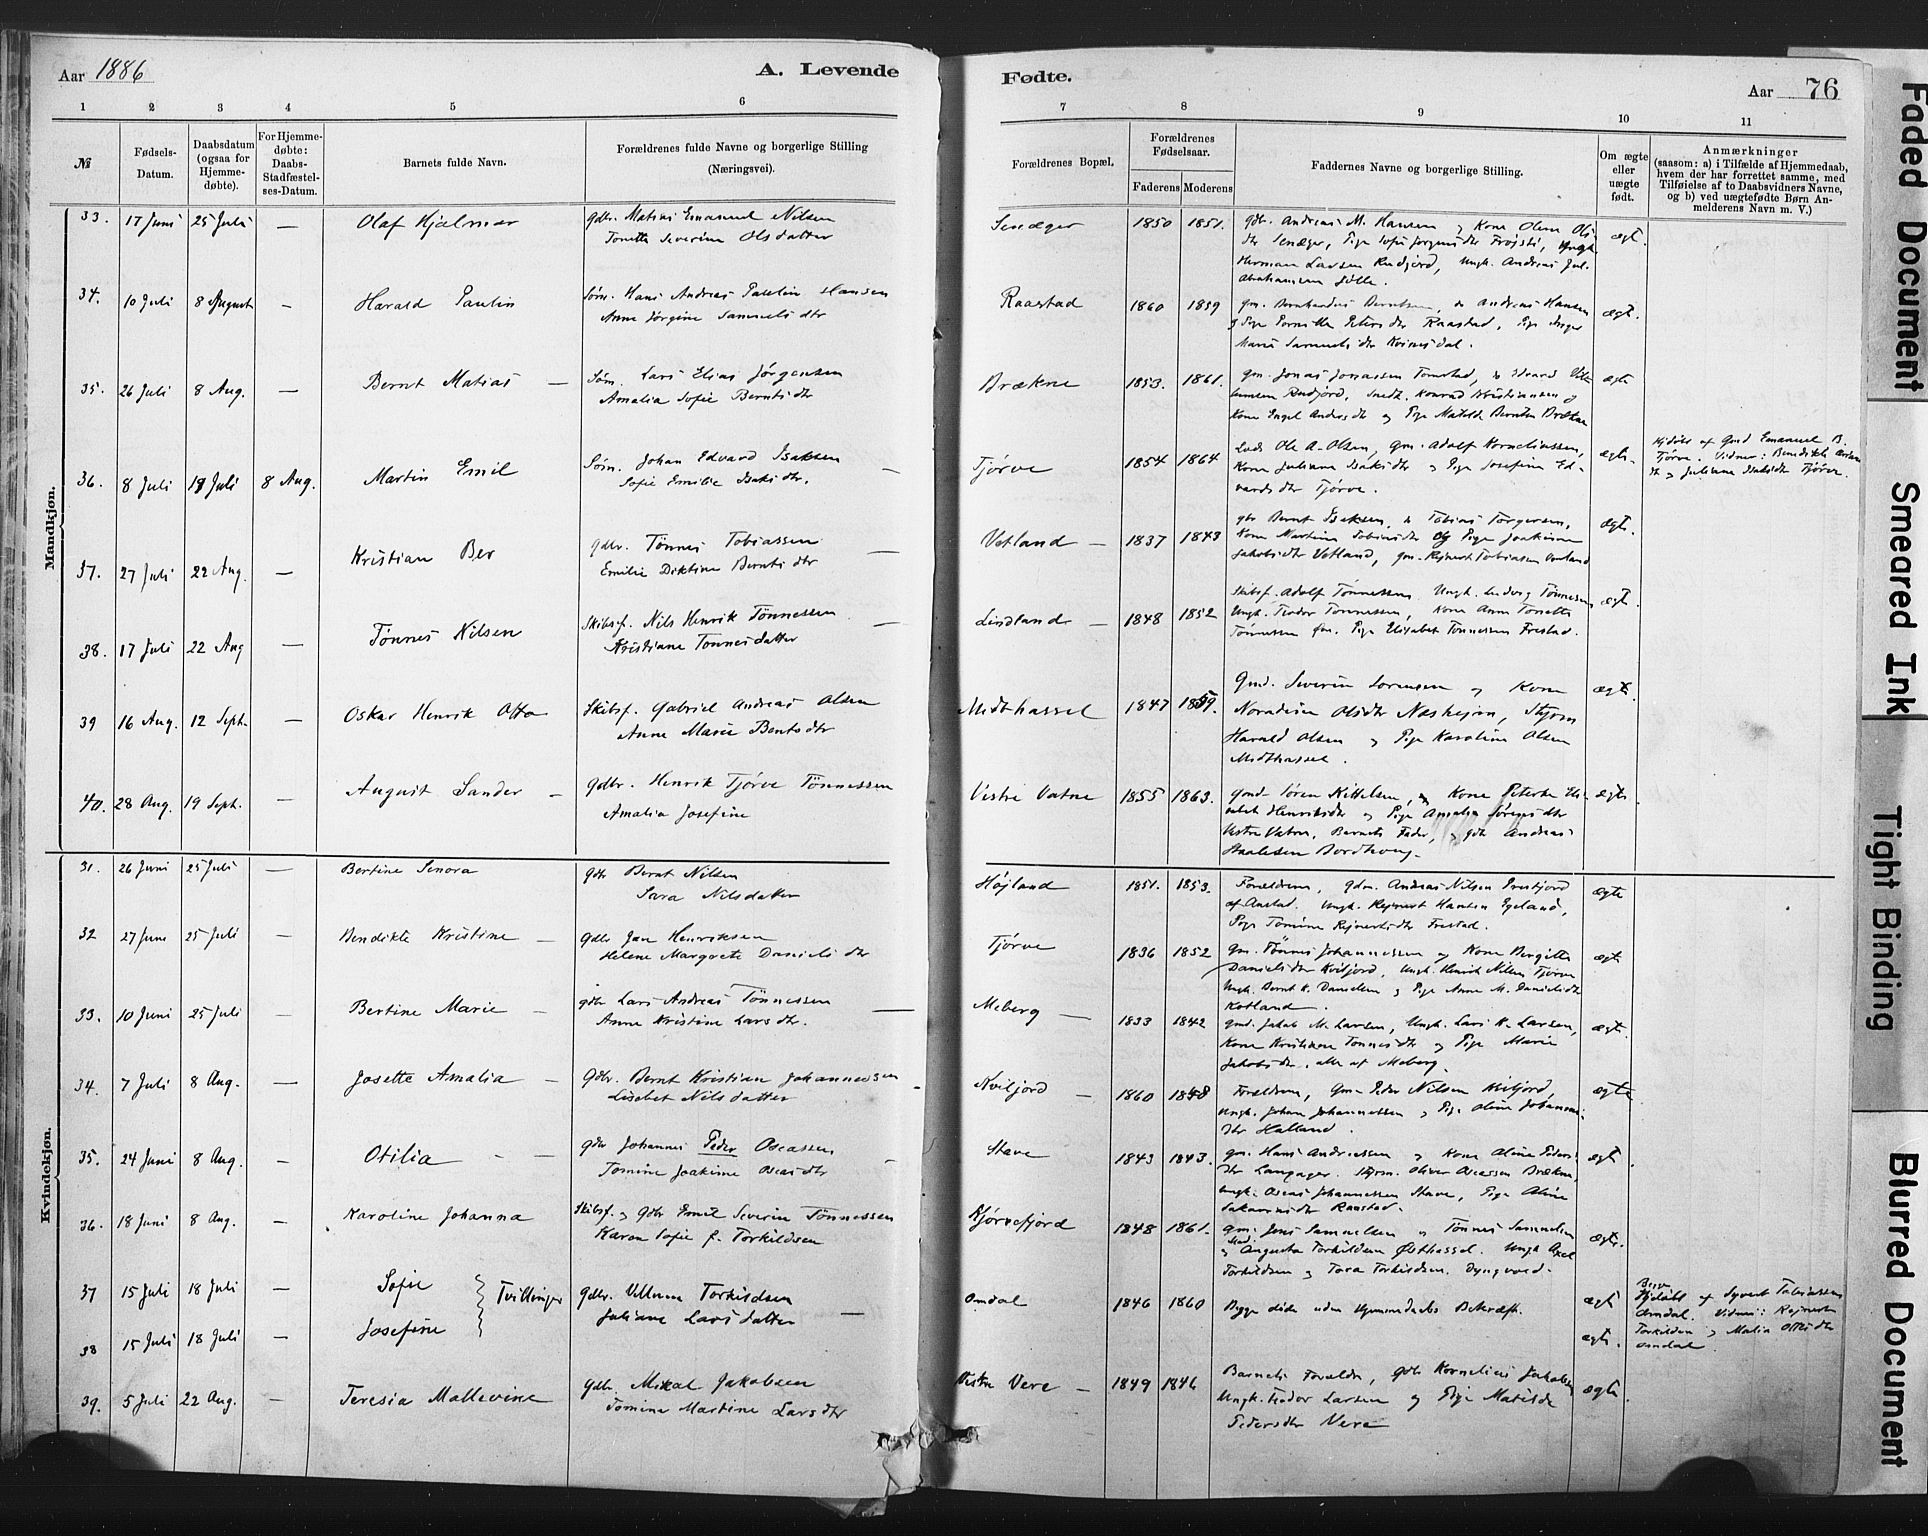 Aar 1886
A. Levende
Fødte.
Aar 76
1 2 3 4 5 6 7 8 9 10 11
№
Fødsels-
Datum.
Daabsdatum
(ogsaa for
Hjemme-
døbte).
For Hjemme-
døbte:
Daabs-
Stadfæstel-
ses-Datum.
Barnets fulde Navn.
Forældrenes fulde Navne og borgerlige Stilling
(Næringsvei).
Forældrenes Bopæl.
Forældrenes
Fødselsaar.
Faderens
Moderens
Faddernes Navne og borgerlige Stilling.
Om ægte
eller
uægte
født.
Anmærkninger
(saasom: a) i Tilfælde af Hjemmedaab,
hvem der har forrettet samme, med
Tilføielse af to Daabsvidners Navne,
og b) ved uægtefødte Børn An-
melderens Navn m. V.)
Mandkjøn.
33. 17 Juni 25 Juli — Olaf Hjalmar
Gdbr. Matias Emanuel Nilsen
Tonette Severine Olsdatter
Senæger 1850 1851.
Gdb. Andreas M. Hansen og Kone Olene Ols
ægt.
34. 10 Juli 8 August — Harald Paulin
Søm. Hans Andreas Paulin Hansen
Anne Jørgine Samuels dtr
Raastad 1860 1859
Marie Samuels dtr Kvinesdal.
ægt.
35. 26 Juli 8 Aug. — Bernt Matias —
Søm. Lars Elias Jørgensen
Amalia Sofie Bernts dtr
Brækne 1853. 1861.
Kone Engel Anders dtr og Pige Matilde Berntsn Brækne
ægte
36. 8 Juli 18 Juli 8 Aug. Martin Emil
Søm. Johan Edvard Isaksen —
Sofie Emilie Isaks dtr.
Tjørve 1854 1864
Ole A. Olsen, Gm. Adolf Korneliussen,
Kone Juliane Isaksdtr og Pige Josefine Ed-
vards dtr Tjørve.
ægte.
Hjdøbt af Gmd Emanuel B.
Tjørve. Vidner: Benedikte
og Juliane Isaksdtr Tjørve.
37. 27 Juli 22 Aug. — Kristian Ber
Gdbr. Tønnes Tobiassen —
Emilie Diktine Bernts dtr
Vetland — 1837 1843
Gdb Bernt Isaksen, do Tobias Torgersen,
Kone Martine Tobiasdtr og Pige Joakime
Jakobsdtr Vetland, Gm. Rejnert Tobiasen
ægte.
38. 17 Juli 22 Aug — Tønnes Nilsen
Skibsf. Nils Henrik Tönnessen —
Kristiane Tonnesdatter
Lindland — 1848 1852
Skibsf. Adolf Tönnessen Ungk. Ludvig Tönnessen
Ungk. Teodor Tonnessen, Kone Anne Tonette
Tönnessen Pige Elisabet Tonnessen Frestad.
ægt.
39 16 Aug. 12 Sept. — Oskar Henrik Otto
Skibsf. Gabriel Andreas Olsen
Anne Marie Bentsdtr
Midthassel 1847 1859.
Gmd. Severin Sorensen og Kone
Olsdtr Næshejen, Styrm
Harald Olsen og Pige Karoline Olsen
Midthassel.
ægt.
40. 28 Aug. 19 Sept. — August Sander —
Gdbr. Henrik Tjørve Tönnessen
Amalia Josefine
Vestre Vatne 1855 1863.
Gmd. Søren Kittelsen, og Kone Peterke Eli-
sabet Henriksdtr og Pige Amalia Sørensdtr
Vestre Vatne, Barnets Fader, og Gdb Andreas
ægte.
Kvindekjøn.
31. 26 Juni 25 Juli — Bertine Senora
Gdb Bernt Nilsen
Sara Nilsdatter
Højland 1851. 1853.
Forældrene, Gdm. Andreas Nilsen
Ungk. Rejnert Hansen Egeland,
Pige Tomine Rejnertsdtr Frestad.
ægte
32 27 Juni 25 Juli — Bendikte Kristine —
Gdb Jan Henriksen
Helene Margrete Daniels dtr
Tjørve 1836 1852
Gm. Tönnes Johannessen og Kone Birgitte
Danielsdtr Kviljord, Ungk. Henrik Nilsen Tjørve
Ungk. Bernt K. Danielsen og Pige Anne M. Danielsdtr
ægte
33. 10 Juni 25 Juli — Bertine Marie —
Gdb Lars Andreas Tönnessen —
Anne Kristine Lars dtr.
Meberg — 1833 1842
Gmd. Jakob M. Larsen, Ungk. Lars K. Larsen,
Kone Kristiane Tonnesdtr og Pige Marie
Jakobsdtr. alle af Meberg.
ægte
34. 7 Juli 8 Aug. — Josette Amalia —
Gdbr. Bernt Kristian Johannessen
Lisebet Nilsdatter
Kviljord — 1860 1848
Forældrene, Gm Peder Nilsen Kviljord,
Ungk. Johan Johannessen og Pige Oline Johannes-
dtr Halland.
ægte
35. 24 Juni 8 Aug. — Otilia —
Gdb Johannes Peder Oseassen
Tomine Joakime Oseasdtr
Stave 1843 1843.
Gm. Hans Andreassen og Kone Aline Peders
dtr Langager. Styrm. Oliver Oseassen Brækne,
Ungk. Oseas Johannessen Stave, Pige Aline
ægt.
36. 18 Juni 8 Aug. — Karoline Johanna
Skibsf. og Gdb Emil Severin Tönnessen
Karen Sofie f. Torkildsen
Kjørrefjord 1848 1861.
Gm. Jens Samuelsen og Tönnes Samuelsen
og Augusta Torkildsen Østhassel. Ungk Axel
Torkildsen og Tora Torkildsen. Dyngvold.
ægte.
37 15 Juli 18 Juli — Sofie
Tvillinger
Gdbr. Villum Torkildsen
Juliane Larsdatter —
Omdal 1846 1860
Begge døde uden Hjemmedaabs Bekræft.
ægt
Begge
Hjdøbt af Syvert Tobiassen
Omdal. Vidner: Rejnert
Torkildsen og Malia Ottesdtr
Omdal.
38 15 Juli 18 Juli — Josefine
ægt.
39. 5 Juli 22 Aug. — Teresia Mallevine
Gdbr. Mikal Jakobsen
Tomine Martine Larsdtr
Vestre Vere — 1849 1846
Barnets Forældr, Gdb Kornelius Jakobsen
Ungk. Teodor Larsen og Pige Matilde
Pedersdtr Vere
ægte
Faded Document
Smeared Ink
Tight Binding
Blurred Document